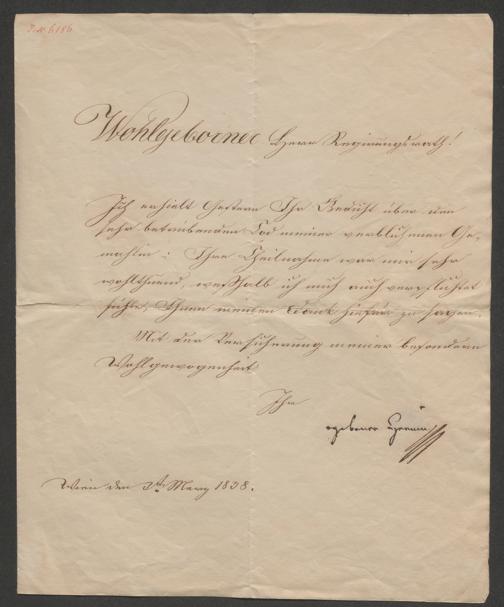 Wohlgeborner Herr Regierungsrath!
Ich erhielt Gestern Ihr Gedicht über den
sehr betrübenden Tod meiner verblichenen Ge-
mahlin; Ihre Theilnahme war mir sehr
wohlthuend, weßhalb ich mich auch verpflichtet
fühle, Ihnen meinen Dank hiefür zu sagen.
Mit der Versicherung meiner besondern
Wohlgewogenheit
Ihr
Wien den 3ten März 1838.